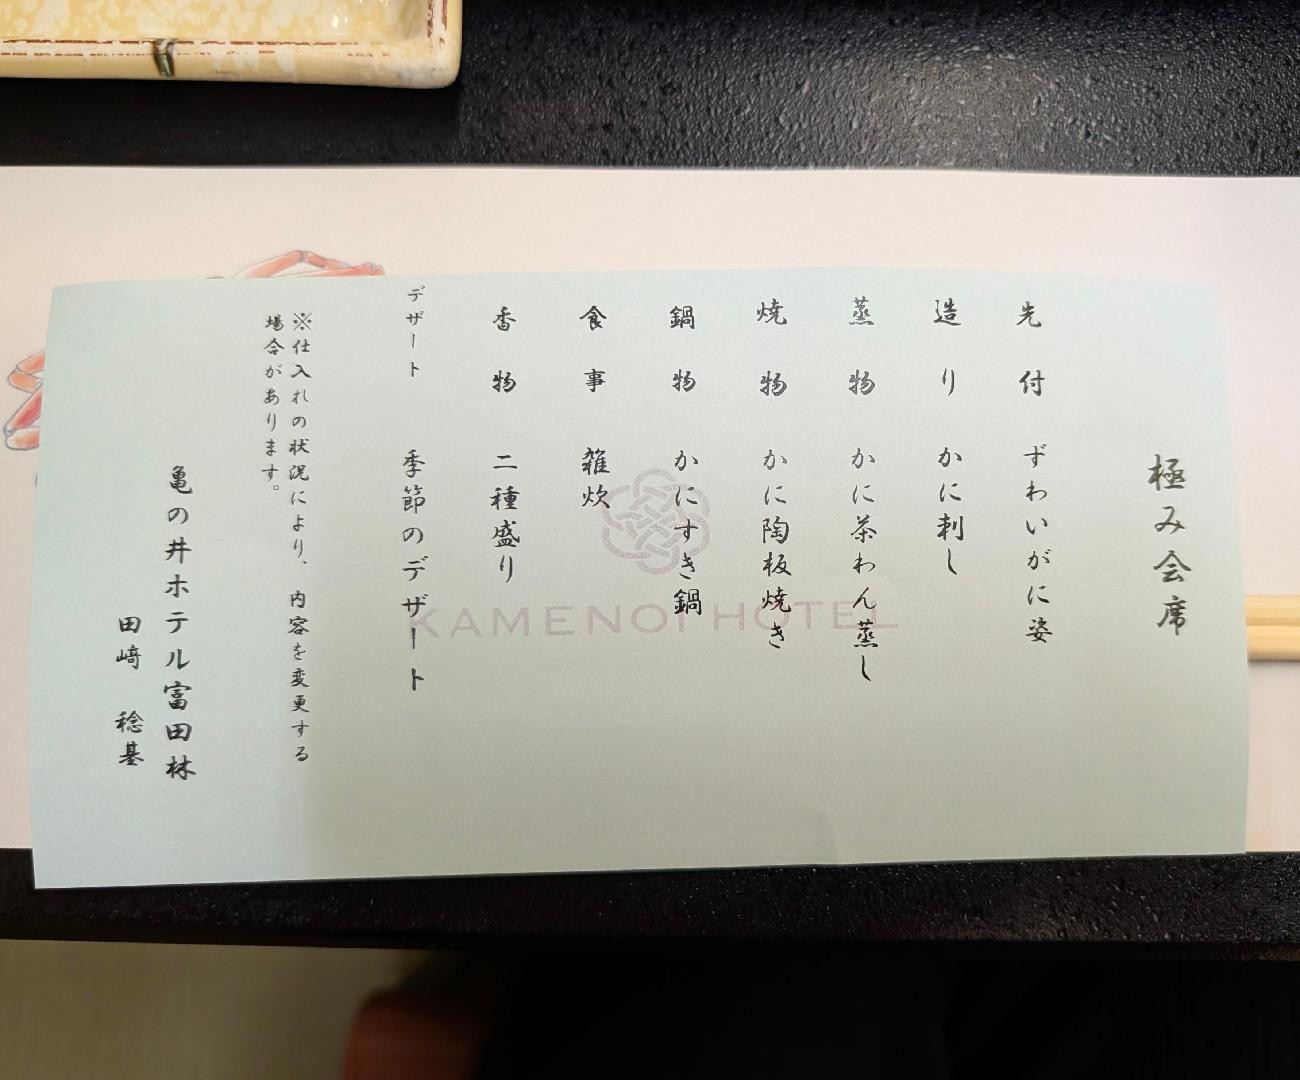 極み会席
先付 ずわいがに姿
造り かに刺し
蒸物 かに茶わん蒸し
焼物 かに陶板焼き
鍋物 かにすき鍋
食事 雑炊
香物 二種盛り
デザート 季節のデザート
※仕入れの状況により、内容を変更する
場合があります。
亀の井ホテル富田林
田﨑 稔基
KAMENOI HOTEL